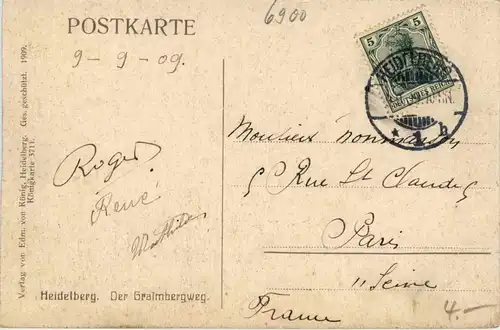 POSTKARTE
6900
9-9-09.
5
DEUTSCHES REICH
HEIDELBERG
* 1 h
Verlag von Edm. von König, Heidelberg. Ges. geschützt. 1909.
Königkarte 3711.
Roger
René
Mathilde
5 Rue St Claude 5
Paris
"Seine
France
4.—
Heidelberg. Der Graimbergweg.